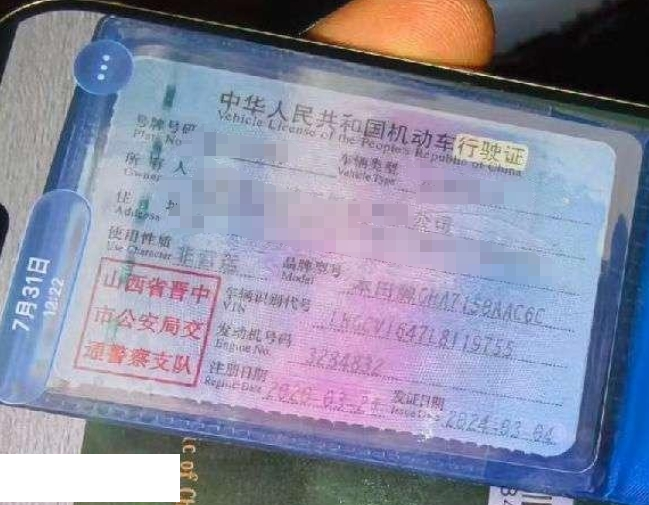 中华人民共和国机动车行驶证
Vehicle License of the People's Republic of China
号牌号码
Plate No.
车辆类型
Vehicle Type
所有人
Owner
公司
住址
Address
使用性质
Use Character
非营运
品牌型号
Model
CHA7158AAC6C
山西省晋中
市公安局交
通警察支队
车辆识别代号
VIN
LHGCV1647L8119755
发动机号码
Engine No.
3284832
注册日期
Register Date
2020-03-24
发证日期
Issue Date
2024-03-04
7月31日
12:22